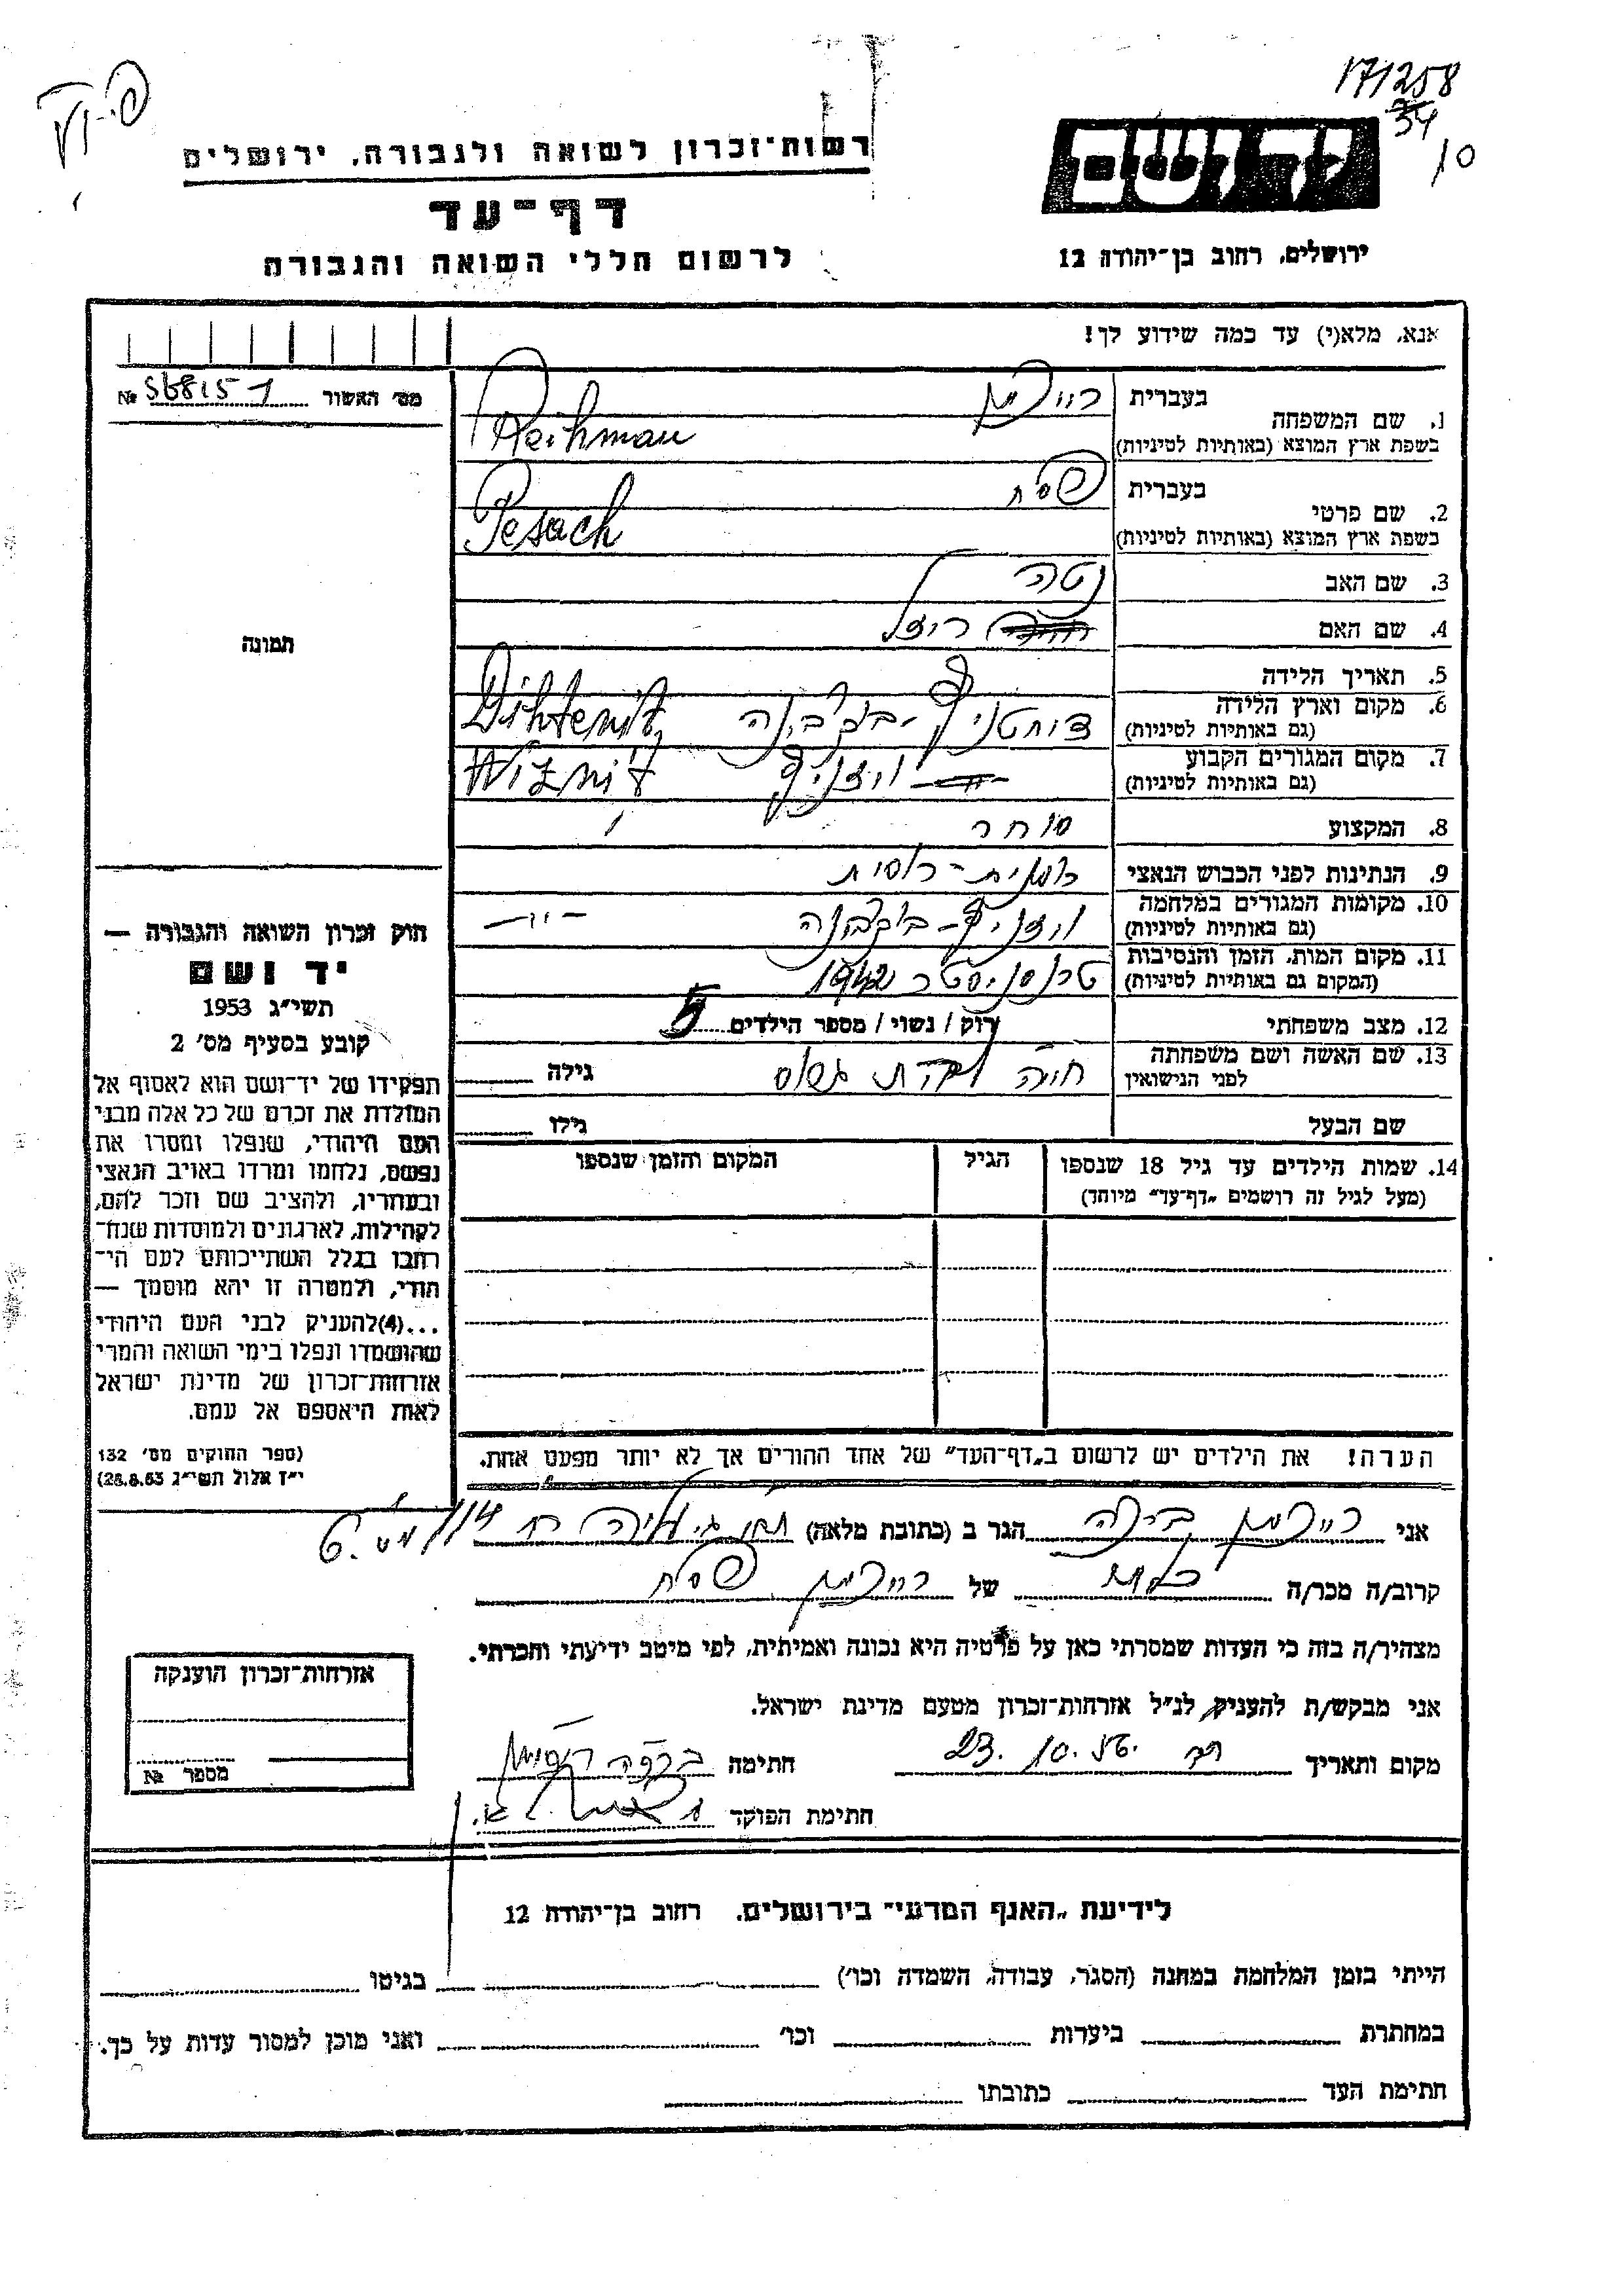 171258
34
10
יד ושם
רשות־זכרון לשואה ולגבורה, ירושלים
דף־עד
לרשום חללי השואה והגבורה
ירושלים, רחוב בן־יהודה 12
אנא, מלא(י) עד כמה שידוע לך!
מס׳ האשור № 56815
1. שם המשפחה בעברית רייכמן
בשפת ארץ המוצא (באותיות לטיניות) Reihman
2. שם פרטי בעברית פסח
בשפת ארץ המוצא (באותיות לטיניות) Pesach
3. שם האב נטה
4. שם האם רוזל
5. תאריך הלידה
6. מקום וארץ הלידה
(גם באותיות לטיניות) דיחטניץ - בוקובינה Dihteniț
7. מקום המגורים הקבוע
(גם באותיות לטיניות) ויזניץ Wizniț
8. המקצוע סוחר
9. הנתינות לפני הכבוש הנאצי רומנית - רוסית
10. מקומות המגורים במלחמה
(גם באותיות לטיניות) ויזניץ - בוקובינה -"-
11. מקום המות, הזמן והנסיבות
(המקום גם באותיות לטיניות) טרנסניסטר 1942
12. מצב משפחתי רוק / נשוי / מספר הילדים 5
13. שם האשה ושם משפחתה
לפני הנישואין חיה גילה
שם הבעל גילו
14. שמות הילדים עד גיל 18 שנספו הגיל המקום והזמן שנספו
(מעל לגיל זה רושמים „דף־עד״ מיוחד)
הערה! את הילדים יש לרשום ב„דף־העד״ של אחד ההורים אך לא יותר מפעם אחת.
תמונה
חוק זכרון השואה והגבורה —
יד ושם
תשי״ג 1953
קובע בסעיף מס׳ 2
תפקידו של יד־ושם הוא לאסוף אל
המולדת את זכרם של כל אלה מבני
העם היהודי, שנפלו ומסרו את
נפשם, נלחמו ומרדו באויב הנאצי
ובעוזריו, ולהציב שם וזכר להם,
לקהילות, לארגונים ולמוסדות שנח־
רבו בגלל השתייכותם לעם הי־
הודי, ולמטרה זו יהא מוסמך —
...(4)להעניק לבני העם היהודי
שהושמדו ונפלו בימי השואה והמרי
אזרחות־זכרון של מדינת ישראל
לאות היאספם אל עמם.
(ספר החוקים מס׳ 132
י״ז אלול תשי״ג 28.8.53)
אני רייכמן ברכה הגר ב (כתובת מלאה)
קרוב/ה מכר/ה של רייכמן פסח
מצהיר/ה בזה כי העדות שמסרתי כאן על פרטיה היא נכונה ואמיתית, לפי מיטב ידיעתי והכרתי.
אני מבקש/ת להעניק לנ״ל אזרחות־זכרון מטעם מדינת ישראל.
מקום ותאריך 23.10.56 חתימה ברכה רייכמן
חתימת הפוקד
אזרחות־זכרון הוענקה
מספר №
לידיעת „האגף המדעי״ בירושלים, רחוב בן־יהודה 12
הייתי בזמן המלחמה במחנה (הסגר, עבודה, השמדה וכו׳) בגיטו
במחתרת ביערות וכו׳ ואני מוכן למסור עדות על כך.
חתימת העד כתובתו